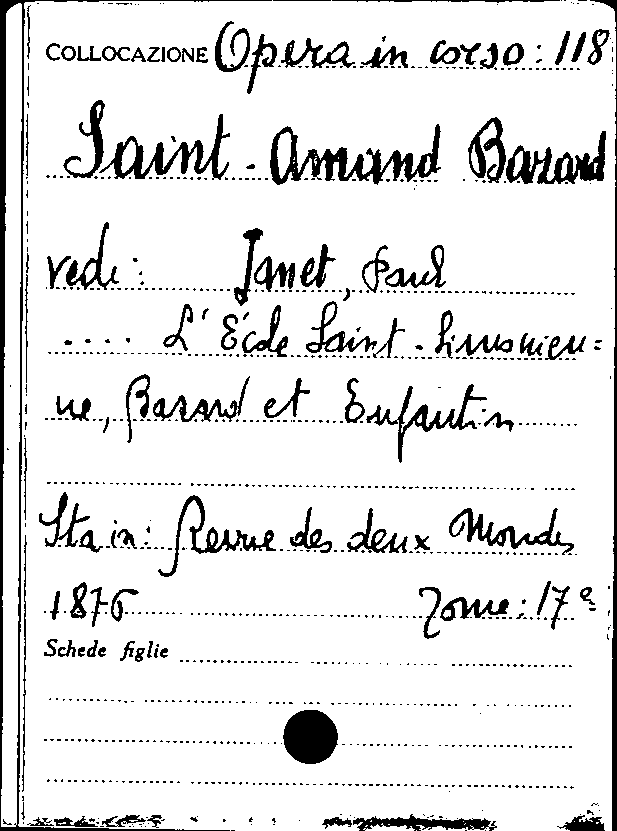 COLLOCAZIONE Opera in corso: 118
Saint-Amand Bazard
vedi: Janet, Paul
.... L'École Saint-Simonien=
ne, Bazard et Enfantin
Sta in: Revue des deux Mondes
1876 Tome: 17e
Schede figlie